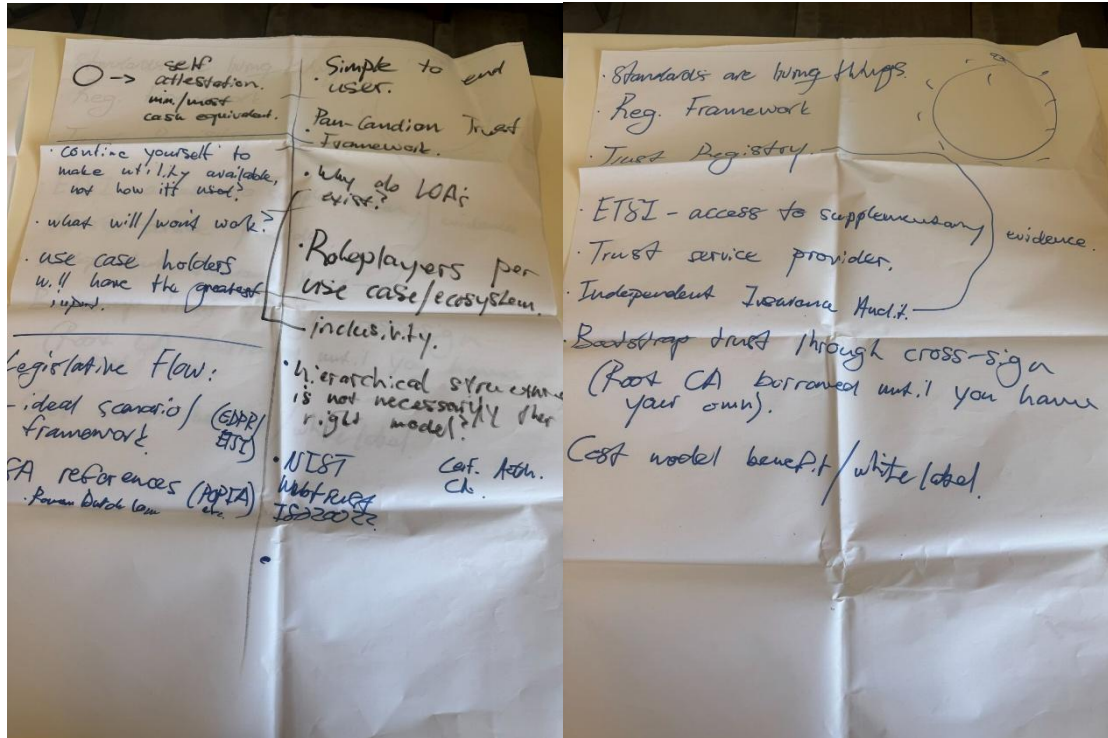 self
attestation.
min/most
cash equivalent.
• confine yourself to
make utility available,
not how it's used?
• what will/won't work?
• use case holders
will have the greatest
input.
Legislative Flow:
- ideal scenario/ (GDPR/
framework. ETSI)
SA references (POPIA)
• Roman Dutch law etc.
Simple to end
• user.
Pan-Candian Trust
• Framework.
• Why do LOAs
exist?
• Roleplayers per
use case/ecosystem.
inclusivity.
• hierarchical structure
is not necessarily the
right model?
• NIST Cert. Auth.
Webtrust
ISO20022
• Standards are living things.
• Reg. Framework
• Trust Registry
• ETSI - access to supplementary evidence.
• Trust service provider.
• Independent Insurance Audit.
• Bootstrap trust through cross-sign
(Root CA borrowed until you have
your own).
Cost model benefit/white label.